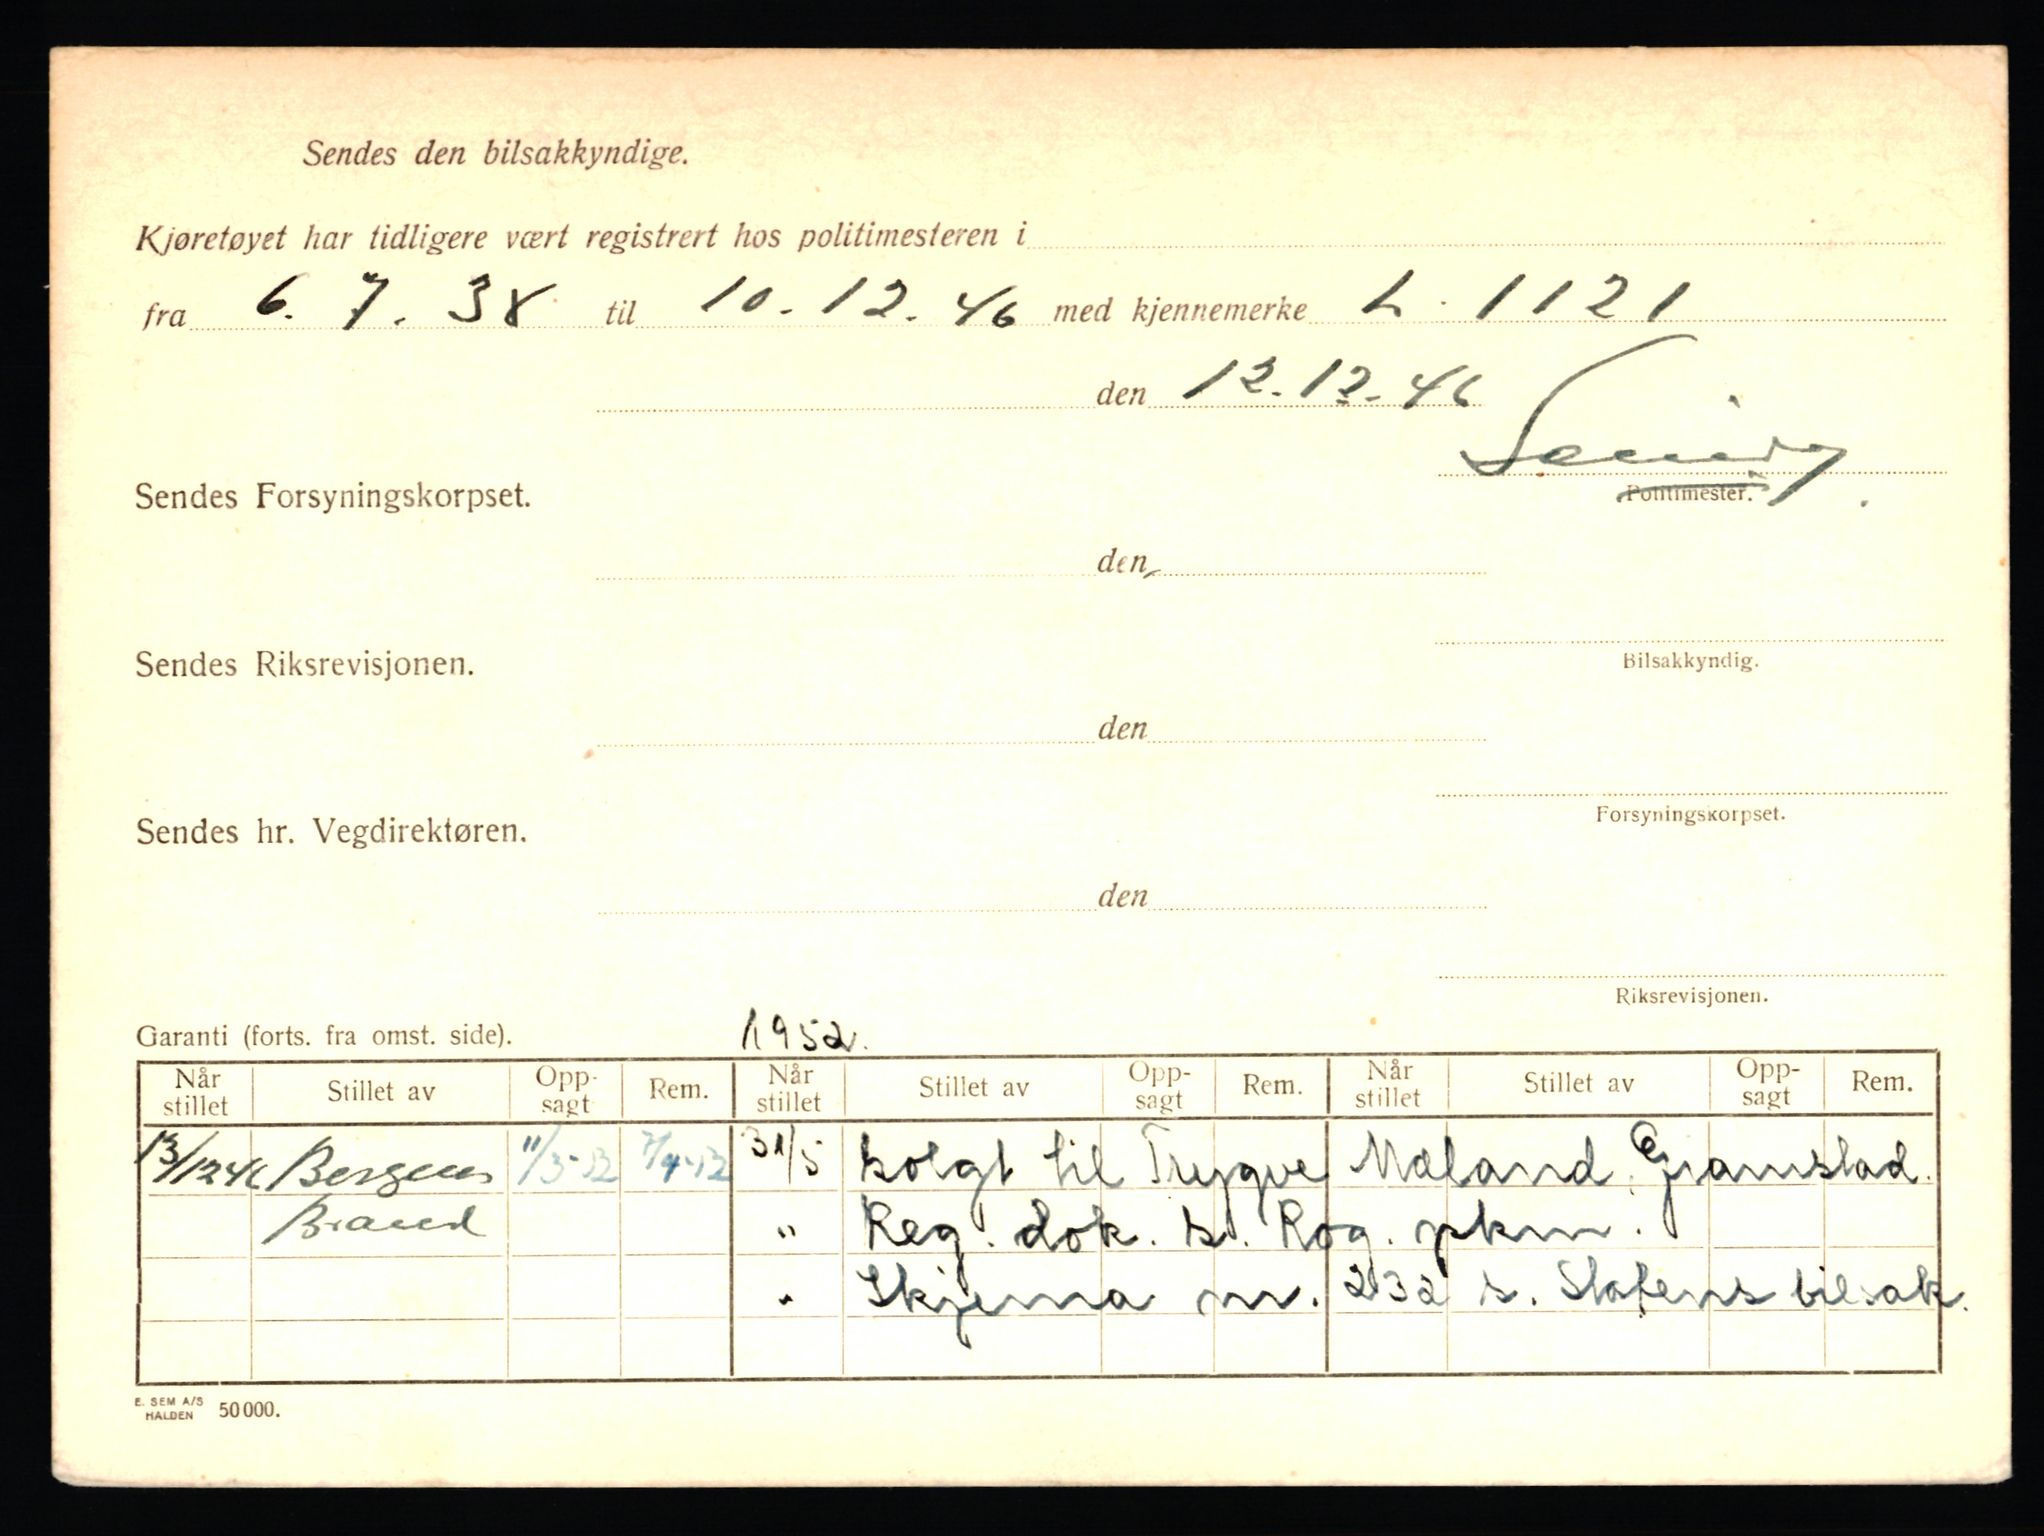 Sendes den bilsakkyndige.
Kjøretøyet har tidligere vært registrert hos politimesteren i
fra 6. 7. 38 til 10. 12. 46 med kjennemerke L. 1121
den 12. 12. 46
Sendes Forsyningskorpset.
Politimester.
den
Sendes Riksrevisjonen.
Bilsakkyndig.
den
Forsyningskorpset.
Sendes hr. Vegdirektøren.
den
Riksrevisjonen.
Garanti (forts. fra omst. side). 1952.
Når stillet Stillet av Opp- sagt Rem. Når stillet Stillet av Opp- sagt Rem. Når stillet Stillet av Opp- sagt Rem.
13/12 46 Bergens 11/3-52 7/4-52 31/5 solgt til Trygve Mæland, Gramstad.
Brand " Reg. dok. s. Rog. pkm.
" Skjema nr. 232 s. Statens bilsak.
E. SEM A/S
HALDEN 50 000.